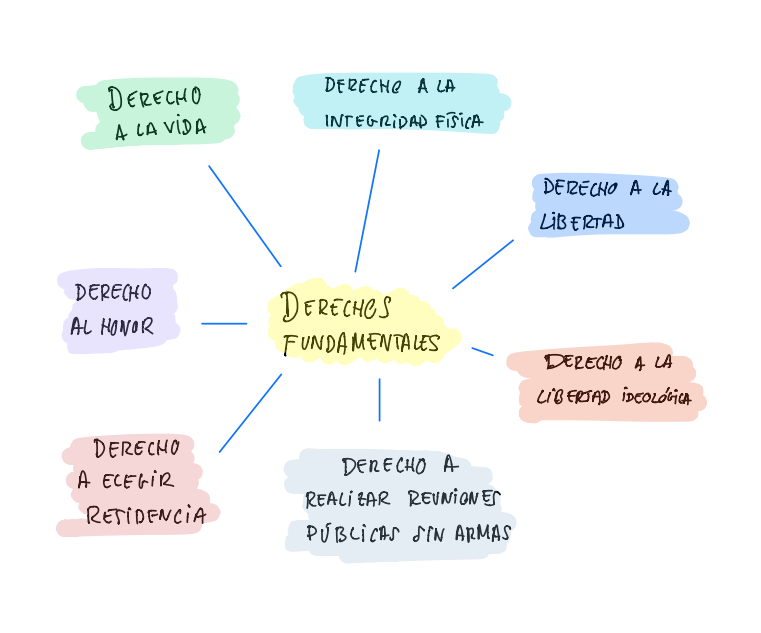 DERECHO
A LA VIDA
DERECHO A LA
INTEGRIDAD FÍSICA
DERECHO A LA
LIBERTAD
DERECHO
AL HONOR
DERECHOS
FUNDAMENTALES
DERECHO A LA
LIBERTAD IDEOLÓGICA
DERECHO
A ELEGIR
RESIDENCIA
DERECHO A
REALIZAR REUNIONES
PÚBLICAS SIN ARMAS